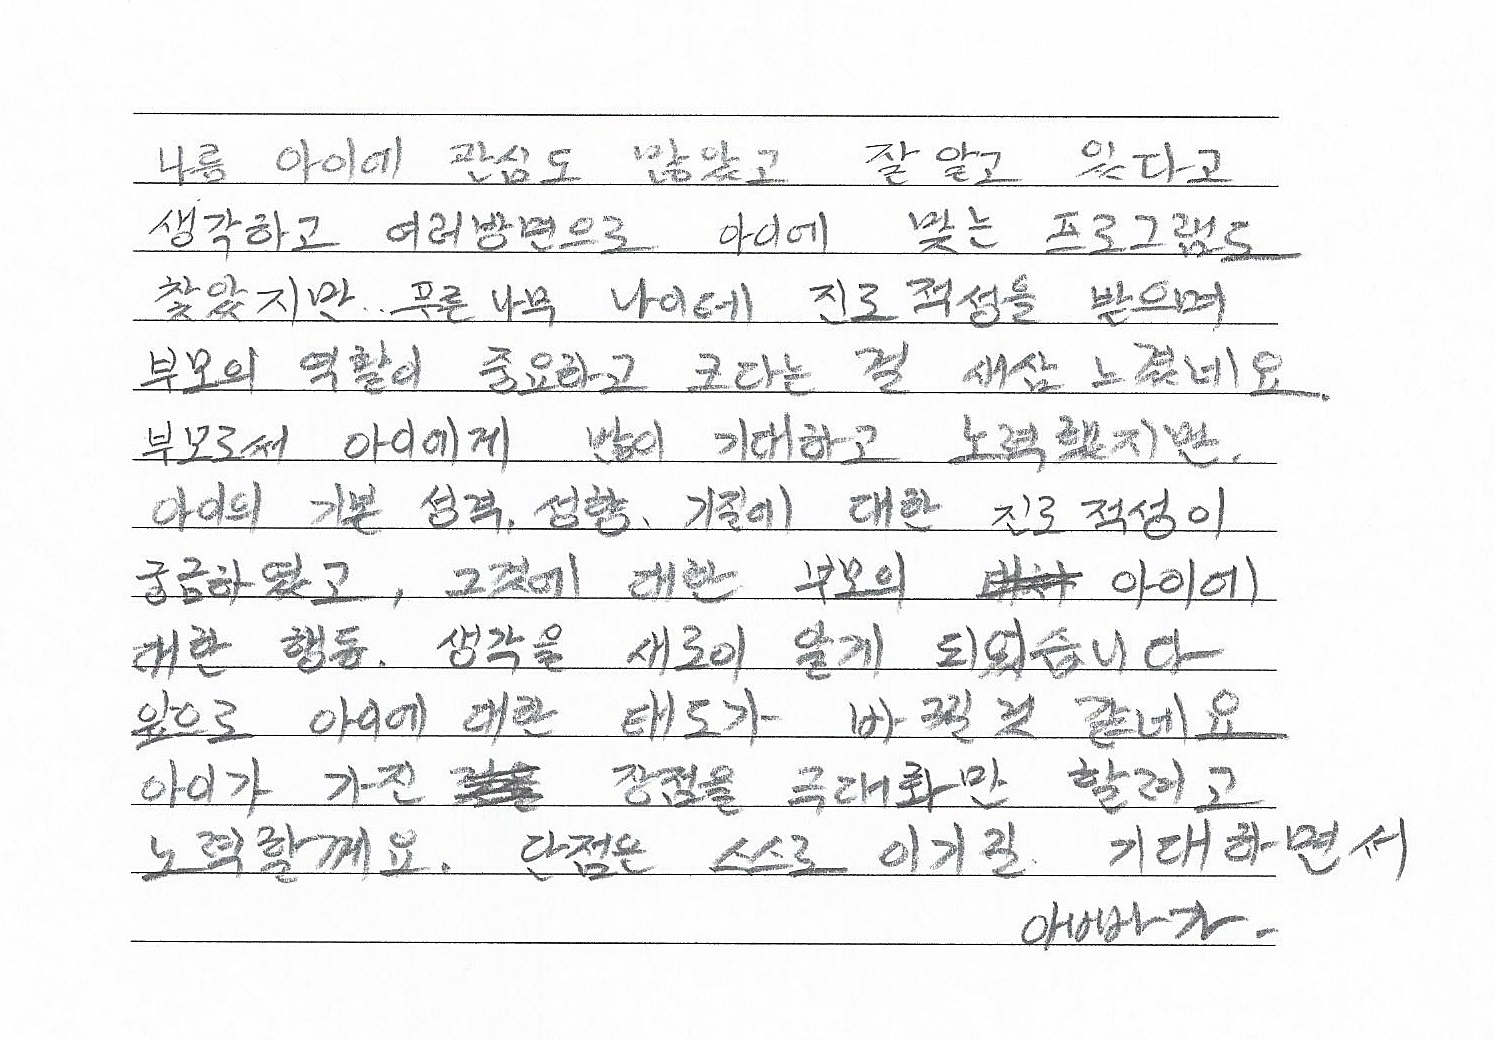 나름 아이에 관심도 많았고 잘 알고 있다고
생각하고 여러방면으로 아이에 맞는 프로그램도
찾았지만.. 푸른나무 나이테 진로적성을 받으며
부모의 역활이 중요하고 크다는 걸 새삼 느꼈네요.
부모로써 아이에게 많이 기대하고 노력했지만.
아이의 기본 성격. 성향. 기질에 대한 진로적성이
궁금하였고, 그것에 대한 부모의 아이에
대한 행동. 생각을 새로이 알게 되었습니다
앞으로 아이에 대한 태도가 바뀔것 같네요
아이가 가진 장점을 극대화만 할려고
노력할께요. 단점은 스스로 이기길 기대하면서
아빠가.